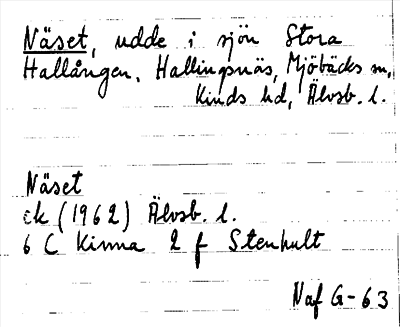 Näset, udde i sjön Stora
Hallången. Hallingsnäs, Mjöbäcks sn,
Kinds hd, Älvsb. l.
Näset
ek (1962) Älvsb. l.
6 C Kinna 2 f Stenhult
Naf G-63